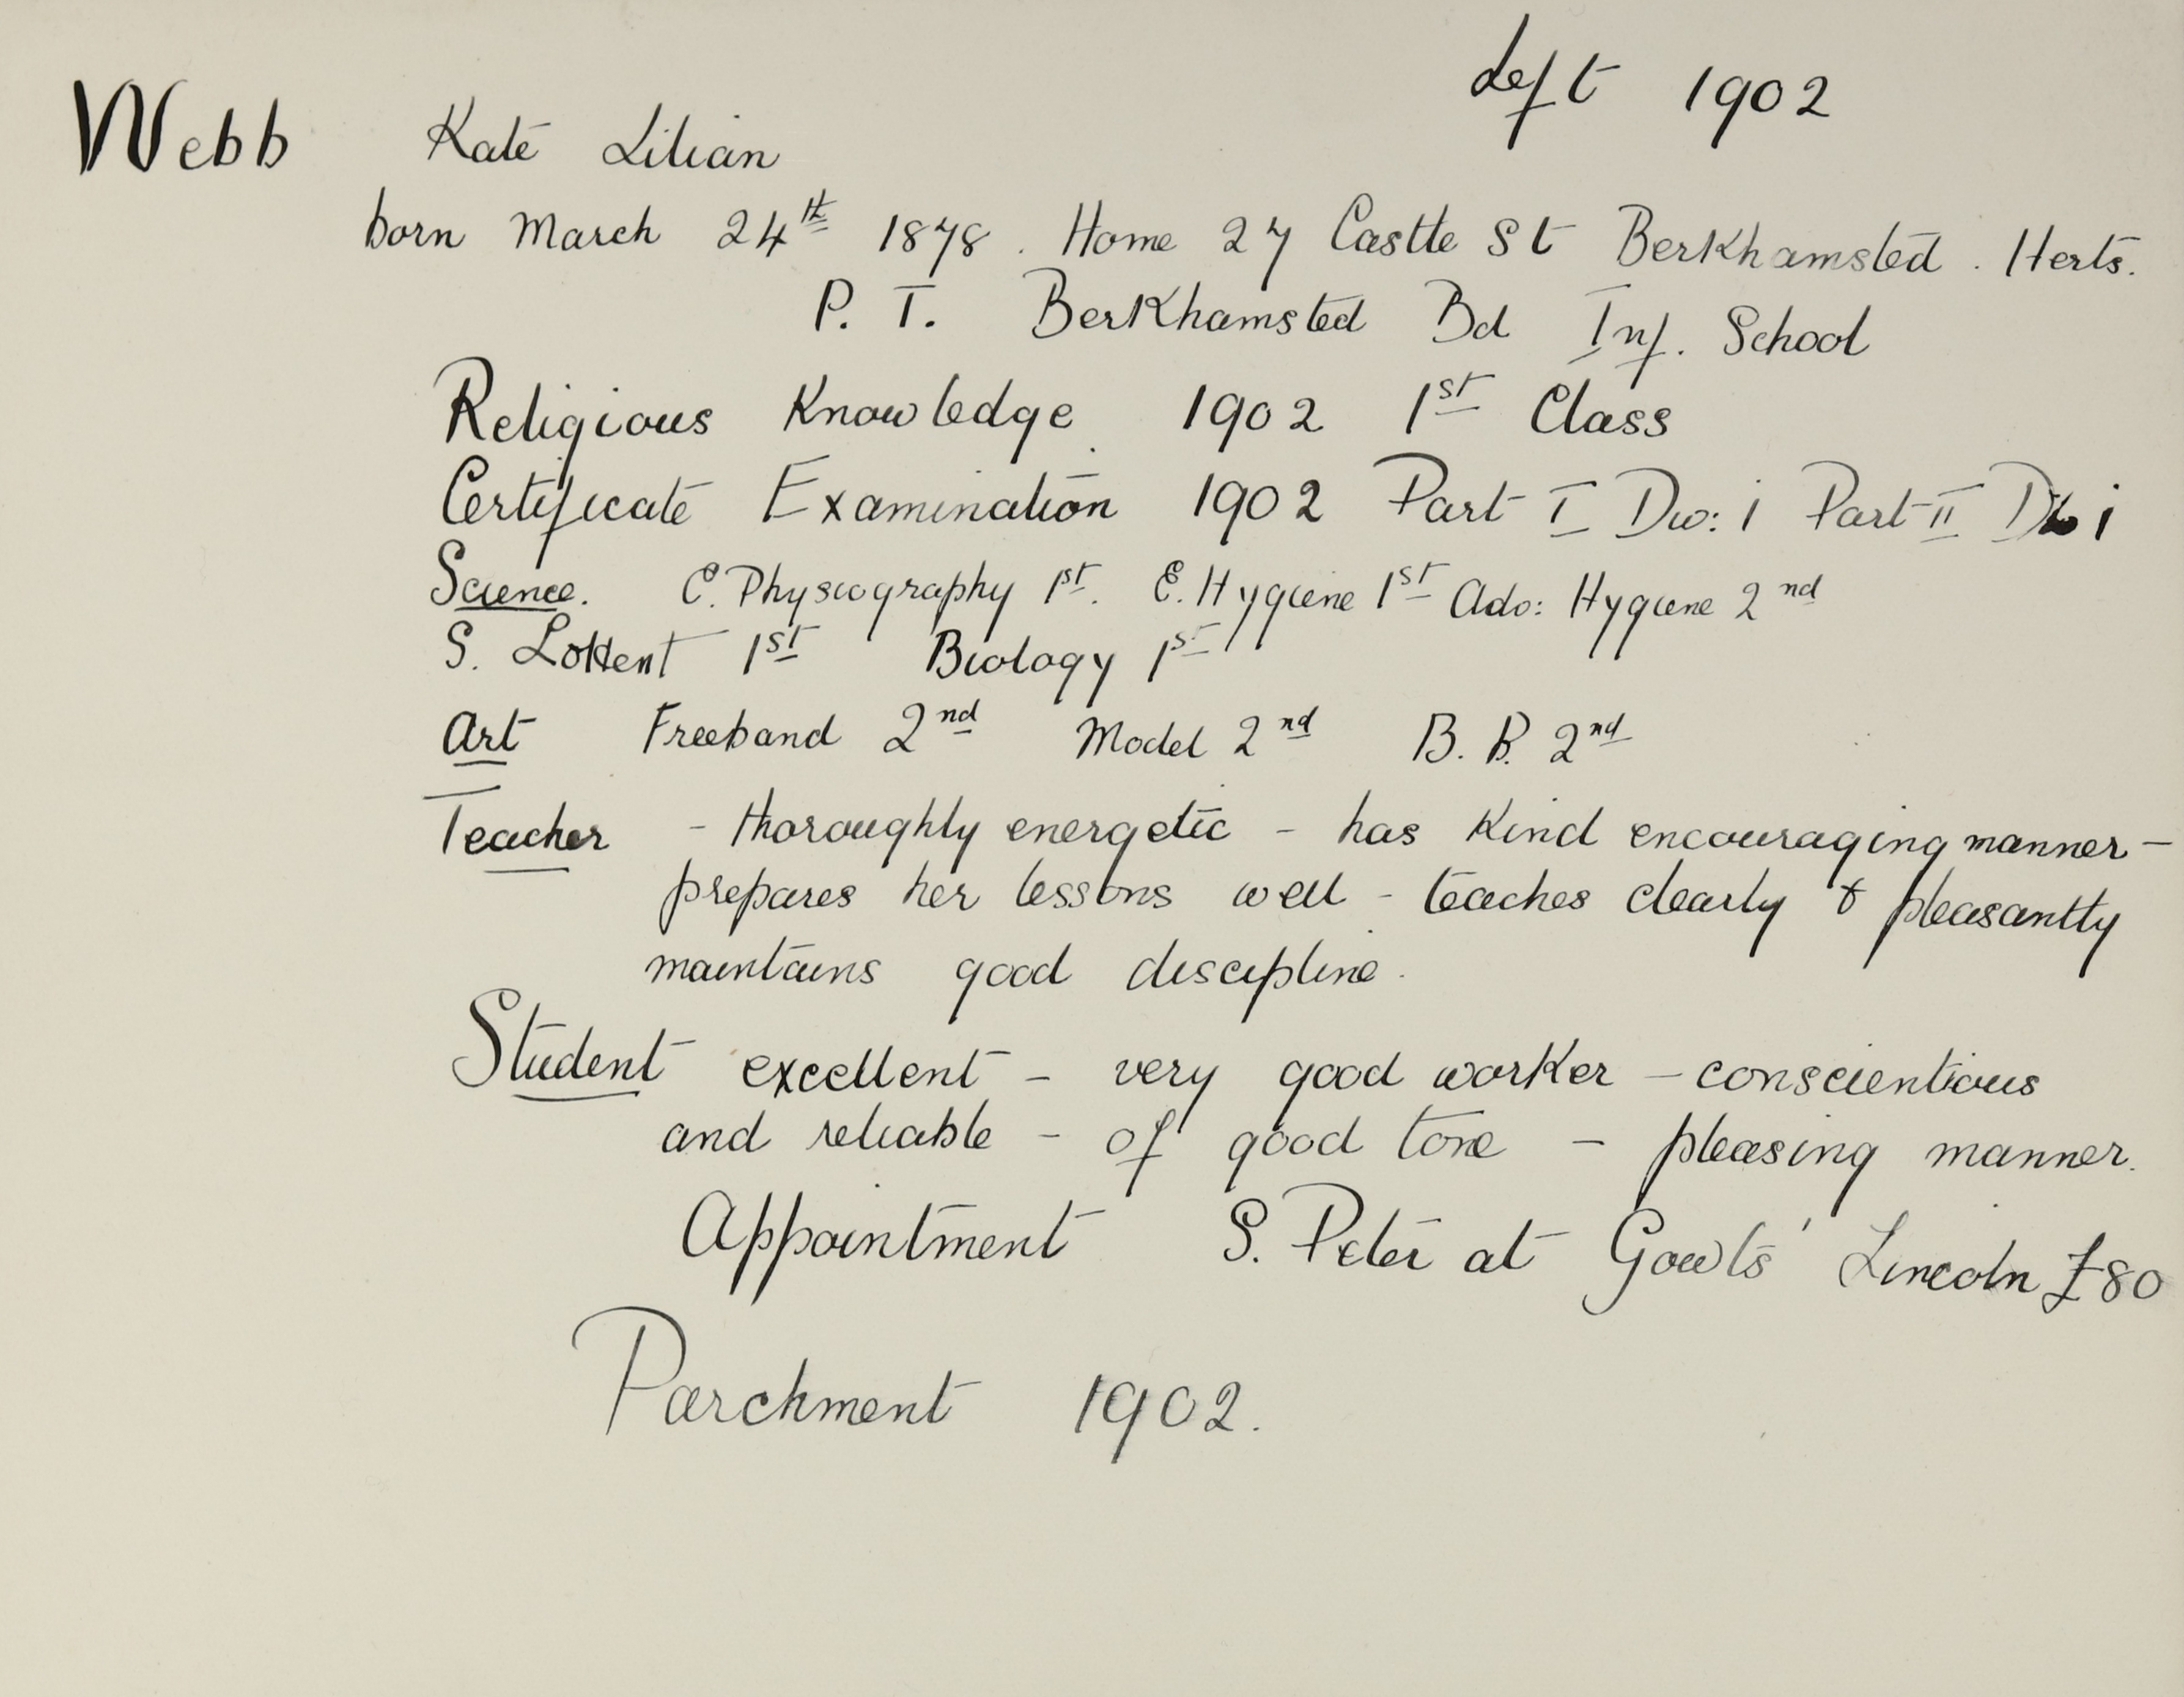 left 1902
Webb Kate Lilian
born March 24th 1878. Home 27 Castle St Berkhamsted. Herts.
P. T. Berkhamsted Bd Inf. School
Religious Knowledge 1902 1st Class
Certificate Examination 1902 Part I Div: i Part II Div i
Science. E. Physiography 1st. E. Hygiene 1st Adv: Hygiene 2nd
S. 1st Biology 1st
Art Freehand 2nd Model 2nd B. B. 2nd
Teacher - thoroughly energetic - has kind encouraging manner -
prepares her lessons well - teaches clearly & pleasantly
maintains good discipline.
Student excellent - very good worker - conscientious
and reliable - of good tone - pleasing manner.
Appointment S. Peter at Gowts' Lincoln £80
Parchment 1902.